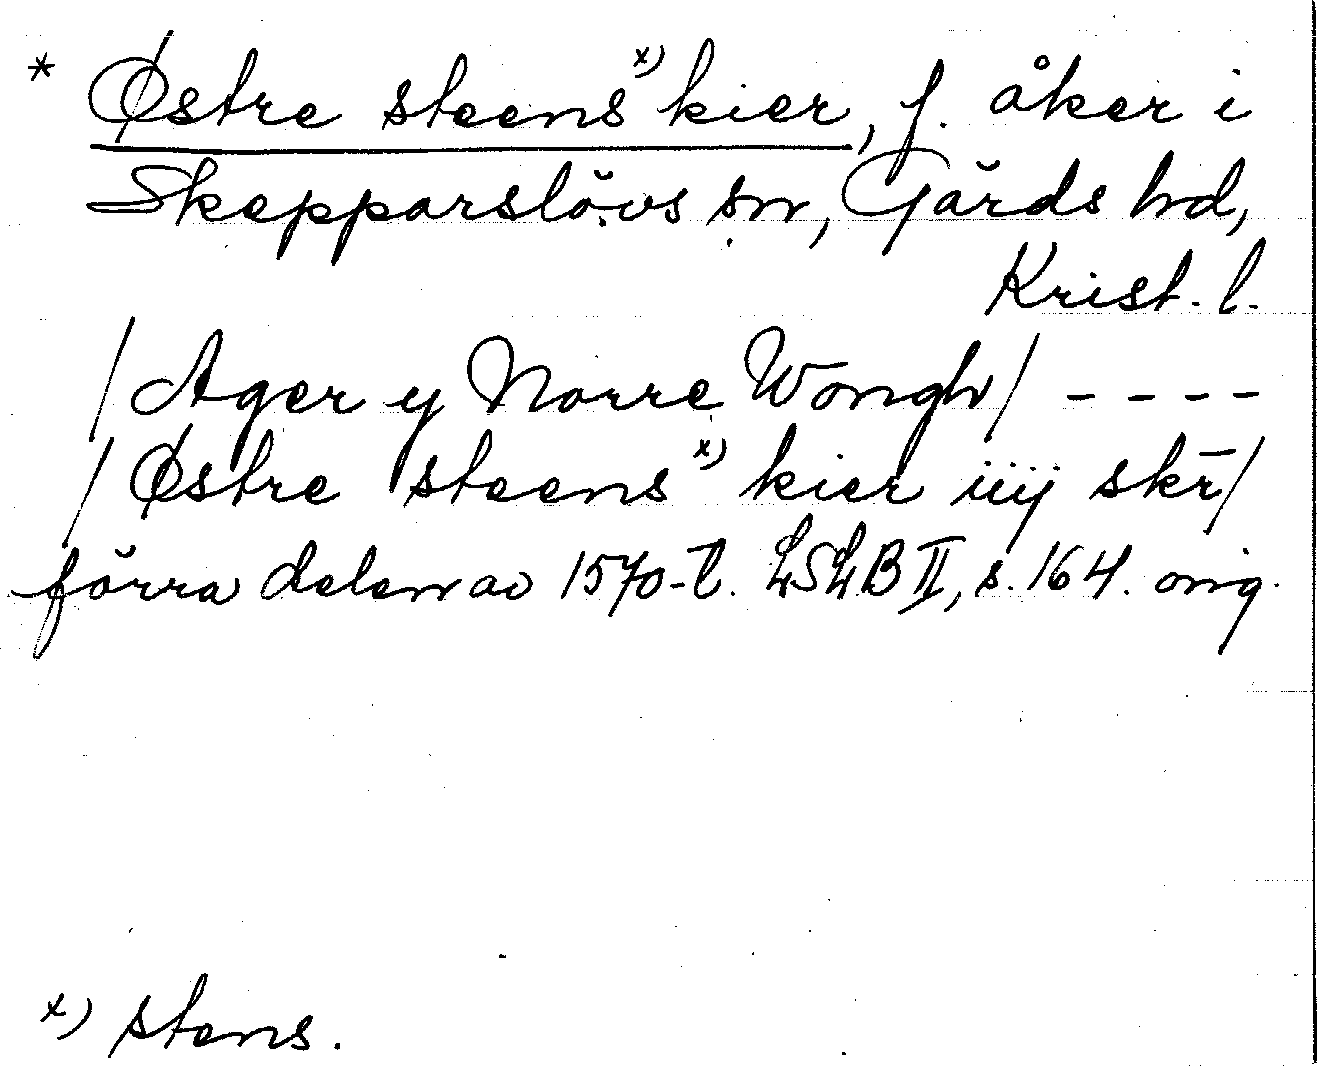 * Østre steens x) kier, f. åker i
Skepparslövs sn, Gärds hd,
Krist. l.
/Ager y Norre Wongh/ - - - -
/Østre steens x) kier iiij skr̄/
förra delen av 1570-t. LSLB II, s. 164. orig.
x) stens.